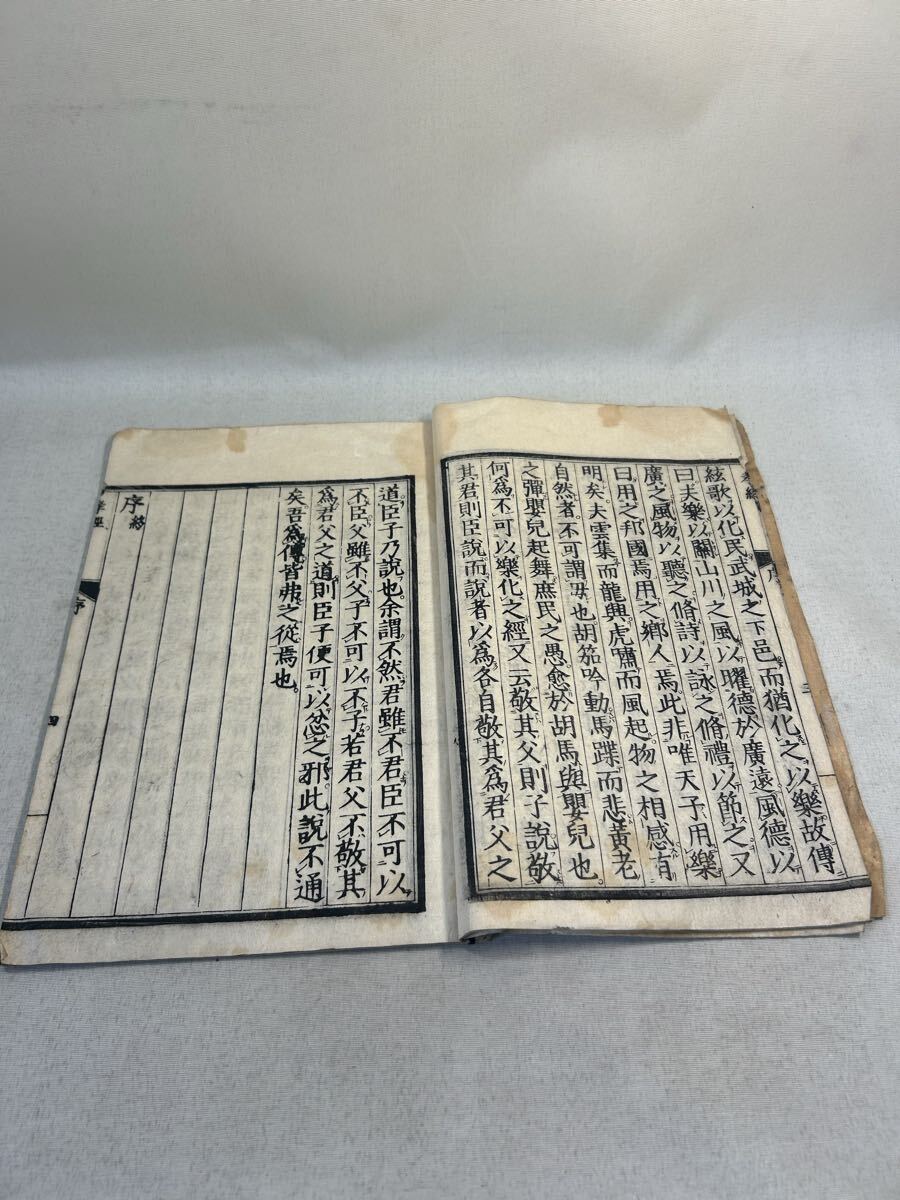 絃歌以化民武城之下邑而猶化之以樂故傳
曰夫樂以關山川之風以曜德於廣遠風德以
廣之風物以聽之脩詩以詠之脩禮以節之又
曰用之邦國焉用之鄉人焉此非唯天子用樂
明矣夫雲集而龍興虎嘯而風起物之相感有
自然者不可謂毋也胡笳吟動馬蹀而悲黃老
之彈嬰兒起舞庶民之愚愈於胡馬與嬰兒也
何爲不可以樂化之經又云敬其父則子說敬
其君則臣說而說者以爲各自敬其爲君父之
道臣子乃說也余謂不然君雖不君臣不可以
不臣父雖不父子不可以不子若君父不敬其
爲君父之道則臣子便可以忿之邪此說不通
矣吾爲傳皆弗之從焉也
序終
序
三
四